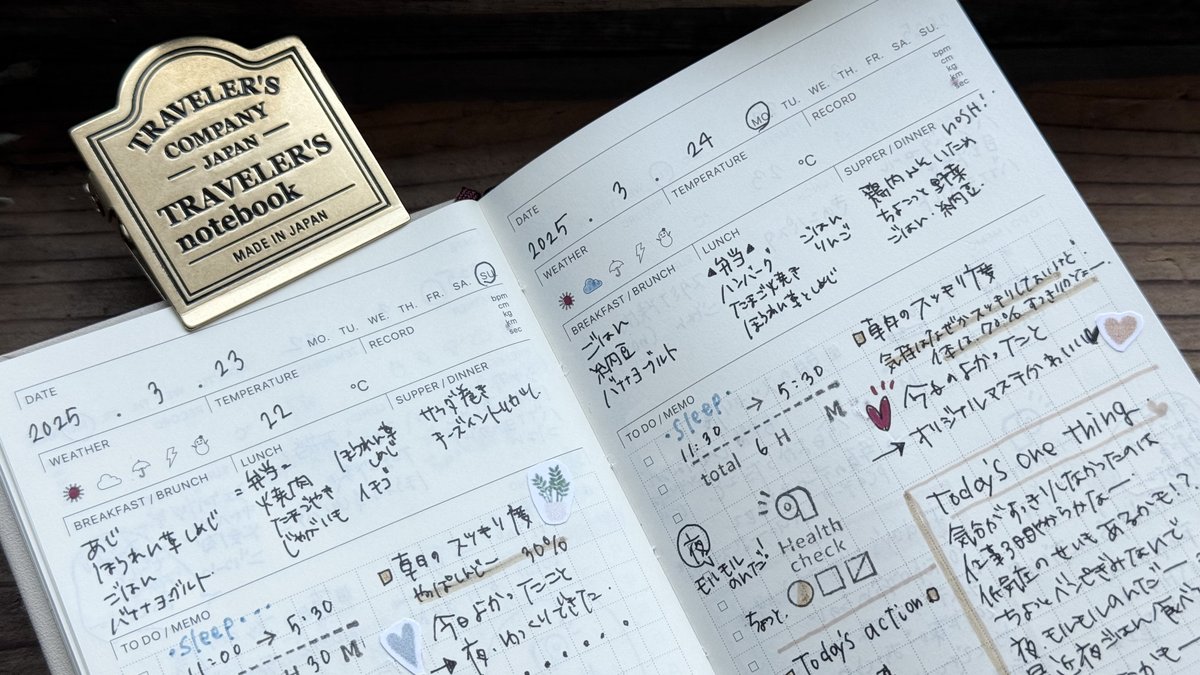 TRAVELER'S
COMPANY
JAPAN
TRAVELER'S
notebook
MADE IN JAPAN
DATE
2025 . 3 . 23
MO. TU. WE. TH. FR. SA. SU.
WEATHER
TEMPERATURE
22 °C
RECORD
bpm
cm
kg
km
sec
BREAKFAST / BRUNCH
あじ
ほうれん草しめじ
ごはん
バナナヨーグルト
LUNCH
弁当
焼肉
たまごやき
じゃがいも
ほうれん草
しめじ
イチゴ
SUPPER / DINNER
サラダ
TO DO / MEMO
sleep
11:00 → 5:30
H 30 M
朝のスッキリ度
30%
今日よかったこと
→ 夜、ゆっくりできた
DATE
2025 . 3 . 24
MO. TU. WE. TH. FR. SA. SU.
WEATHER
TEMPERATURE
°C
RECORD
bpm
cm
kg
km
sec
BREAKFAST / BRUNCH
ごはん
納豆
バナナヨーグルト
LUNCH
弁当
ハンバーグ
たまご焼き
ほうれん草としめじ
ごはん
りんご
SUPPER / DINNER
NOSH!
ちょこっと野菜
ごはん、納豆
TO DO / MEMO
sleep
11:30 → 5:30
total 6 H M
Health
check
夜
モルモル
のんだ!
ちょっと
Today's action
朝のスッキリ度
体は70%
今日のよかったこと
→ オリジナルマステかわいい
Today's one thing
気分がすっきりしなかったのは
仕事3日目やからかなー
低気圧のせいもあるかも!?
夜、モルモルのんだー
最近夜ごはん食べ
かもー